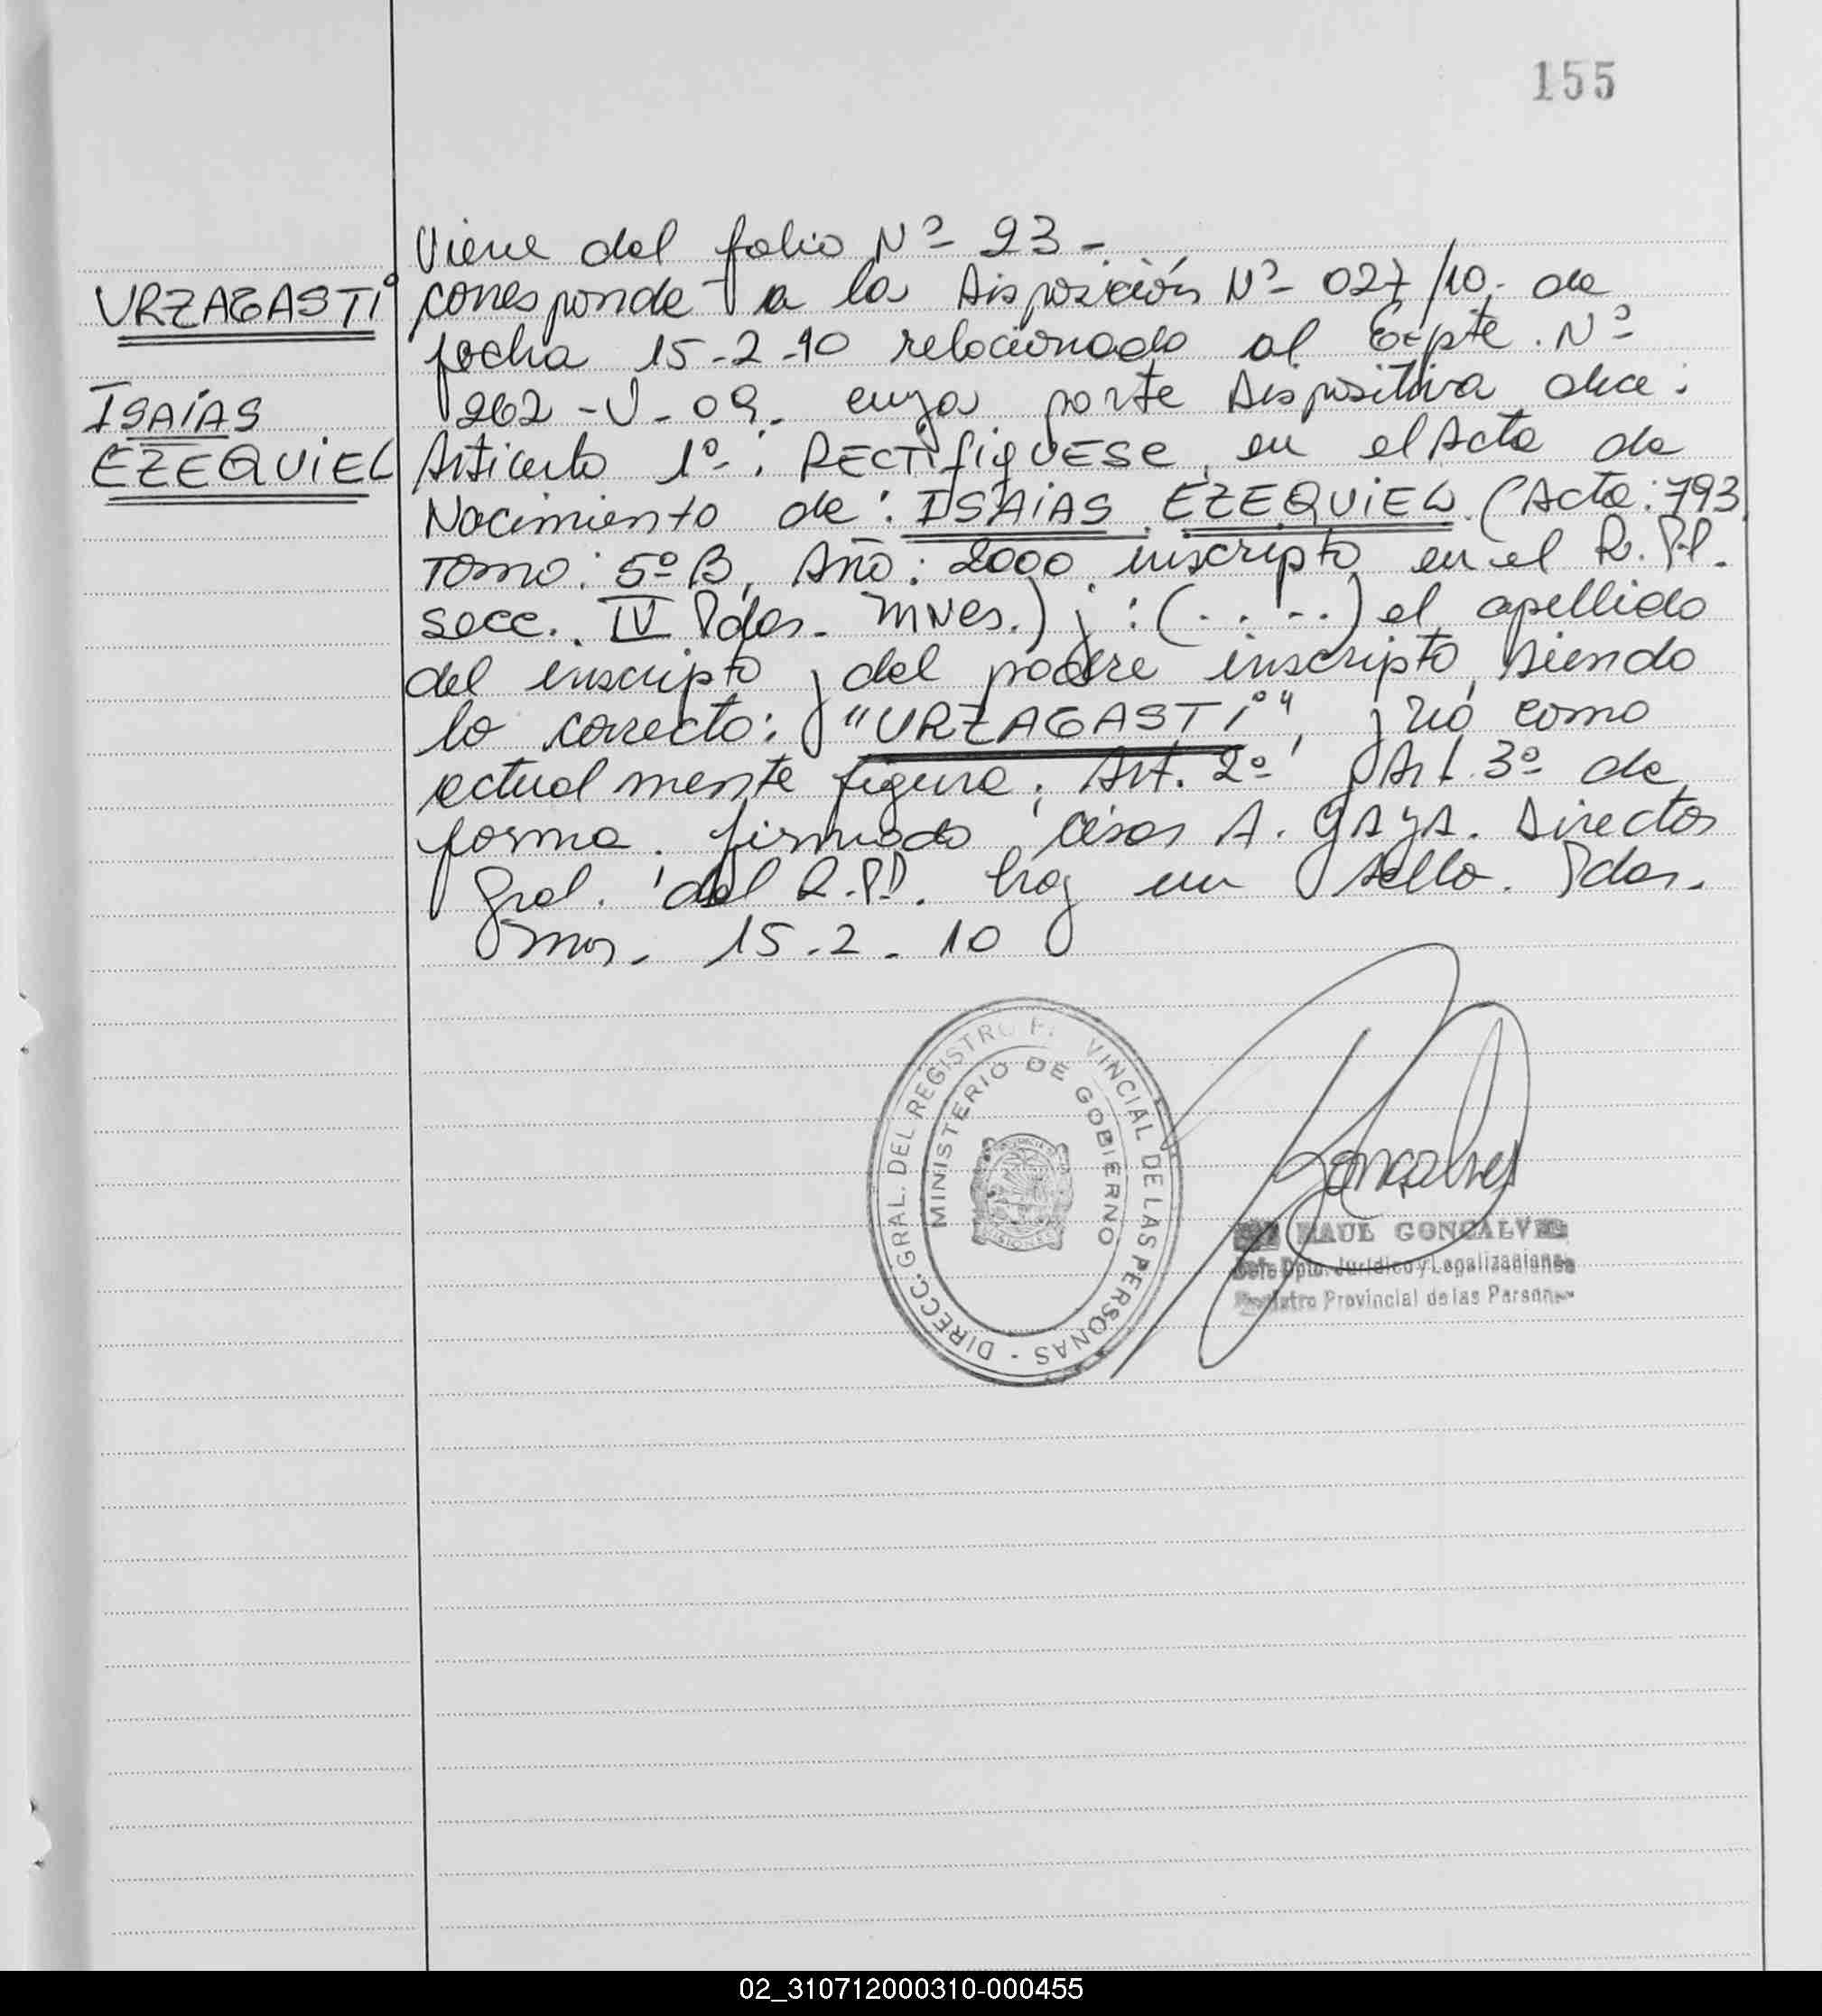 155
Viene del folio Nº 93-
URZAGASTI
corresponde a la Disposición Nº 027/10,- de
fecha 15-2-10 relacionado al Expte. Nº
ISAÍAS
262-U-09. cuya parte Dispositiva dice:
EZEQUIEL
Articulo 1º-: RECTIFIQUESE, en el Acta de
Nacimiento de: ISAIAS EZEQUIEL (Acta: 793
Tomo: 5º B, Año: 2000 inscripto en el R.P.P.
secc. IV Pdas. Mnes.) ; : (.....) el apellido
del inscripto y del padre inscripto, siendo
lo correcto: "URZAGASTI", y no como
actualmente figura; Art. 2º y Art. 3º de
forma. firmado César A. Gaya. Director
Gral. del R.P.P. hay un sello. Pdas.
Mnes. 15.2.10
DIRECC. GRAL. DEL REGISTRO P VINCIAL DE LAS PERSONAS -
MINISTERIO DE GOBIERNO
MISIONES
Goncalves
RAUL GONCALVES
Jefe Dpto. Jurídico y Legalizaciones
Registro Provincial de las Personas
02_310712000310-000455